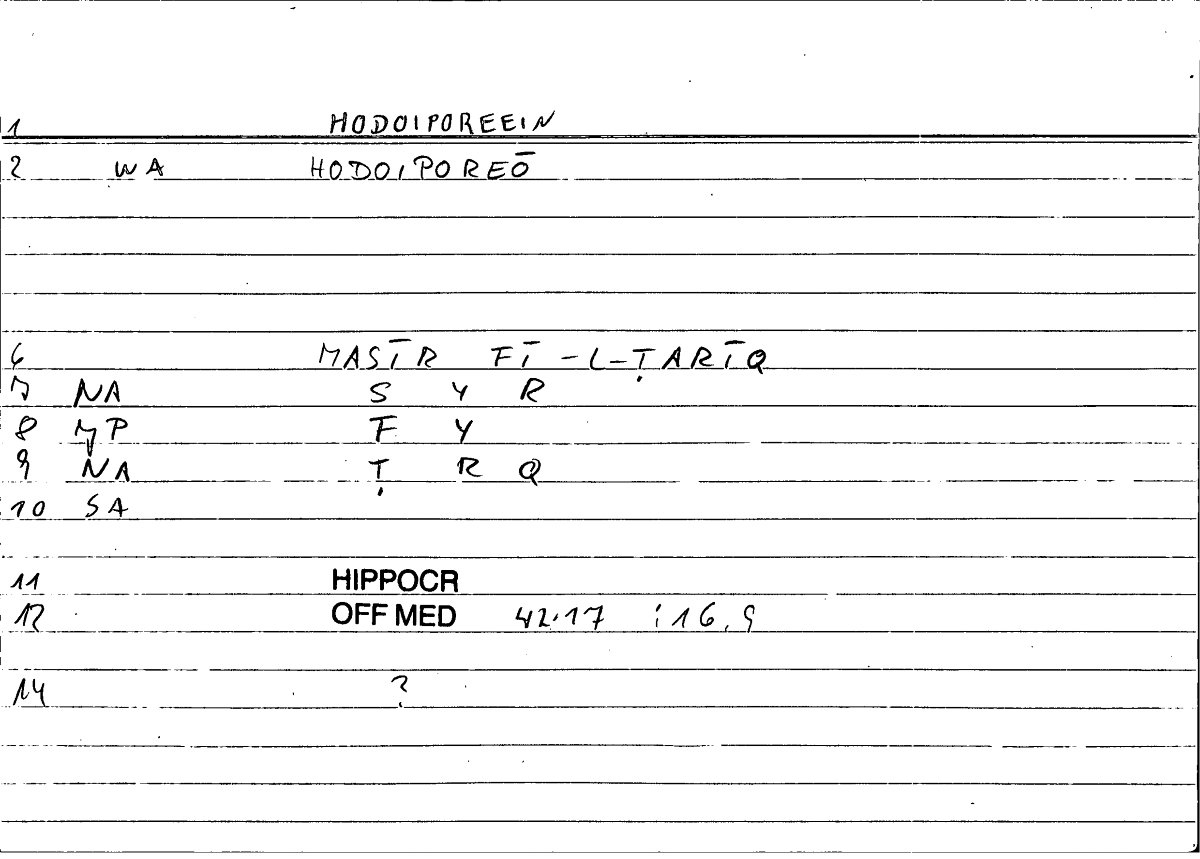 1 HODOIPOREEIN
2 WA HODOIPOREŌ
6 MASĪR FĪ-L-ṬARĪQ
7 NA S Y R
8 MP F Y
9 NA Ṭ R Q
10 SA
11 HIPPOCR
12 OFF MED 42.17 : 16,9
14 ?